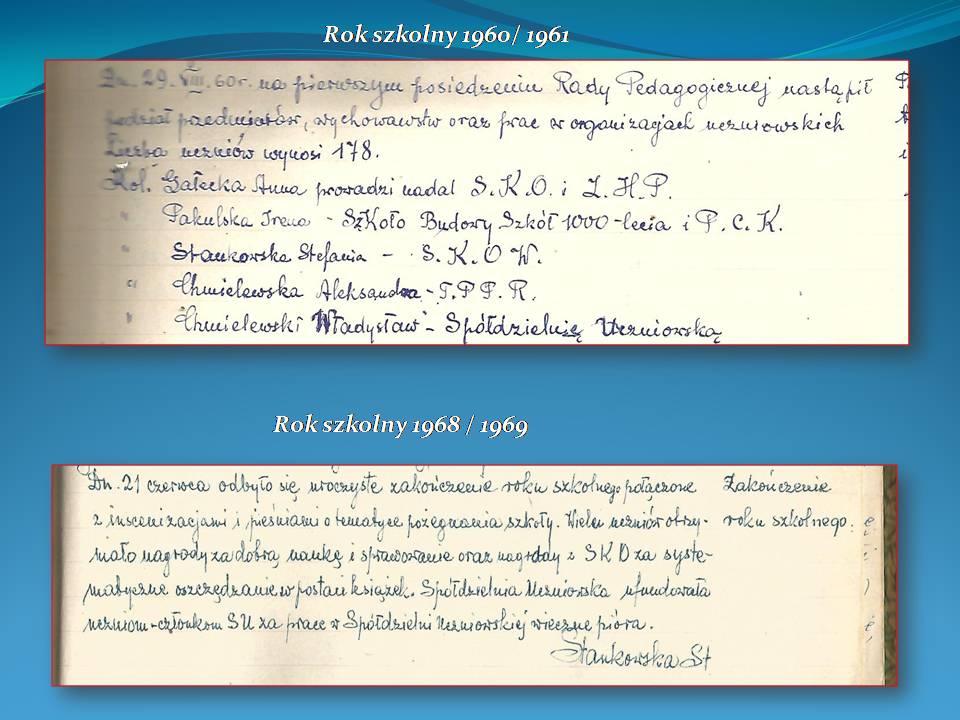 Rok szkolny 1960/ 1961
Dn. 29. VIII. 60r. na pierwszym posiedzeniu Rady Pedagogicznej nastąpił
podział przedmiotów, wychowawstw oraz prac w organizacjach uczniowskich
Liczba uczniów wynosi 178.
Kol. Gałecka Anna prowadzi nadal S.K.O. i Z.H.P.
" Pakulska Irena - SzKoło Budowy Szkół 1000-lecia i P.C.K.
" Stankowska Stefania - S.K.O W.
" Chmielewska Aleksandra - T.P P.R.
" Chmielewski Władysław - Spółdzielnię Uczniowską
Rok szkolny 1968 / 1969
Dn. 21 czerwca odbyło się uroczyste zakończenie roku szkolnego połączone Zakończenie
z inscenizacjami i pieśniami o tematyce pożegnania szkoły. Wielu uczniów otrzy- roku szkolnego.
mało nagrody za dobrą naukę i sprawowanie oraz nagrody z SKO za syste-
matyczne oszczędzanie w postaci książek. Spółdzielnia Uczniowska ufundowała
uczniom-członkom SU za prace w Spółdzielni Uczniowskiej wieczne pióra.
Stankowska St